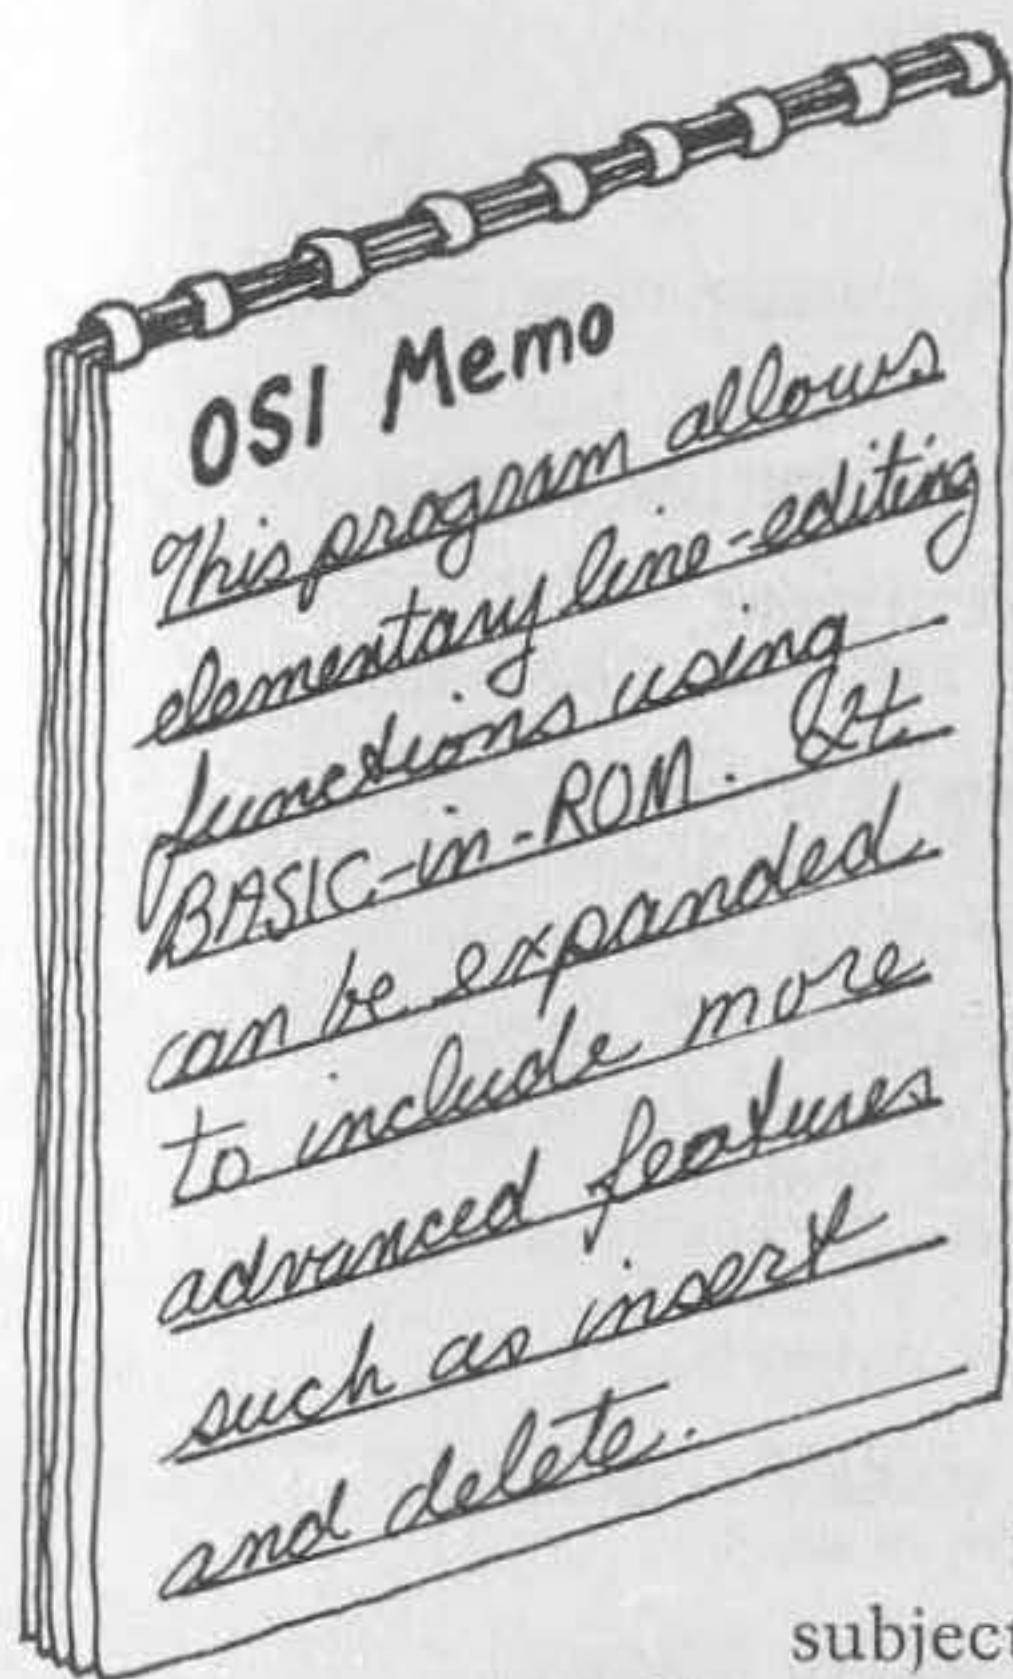 OSI Memo
This program allows
elementary line-editing
functions using
BASIC-in-ROM. It
can be expanded
to include more
advanced features
such as insert
and delete.
subject